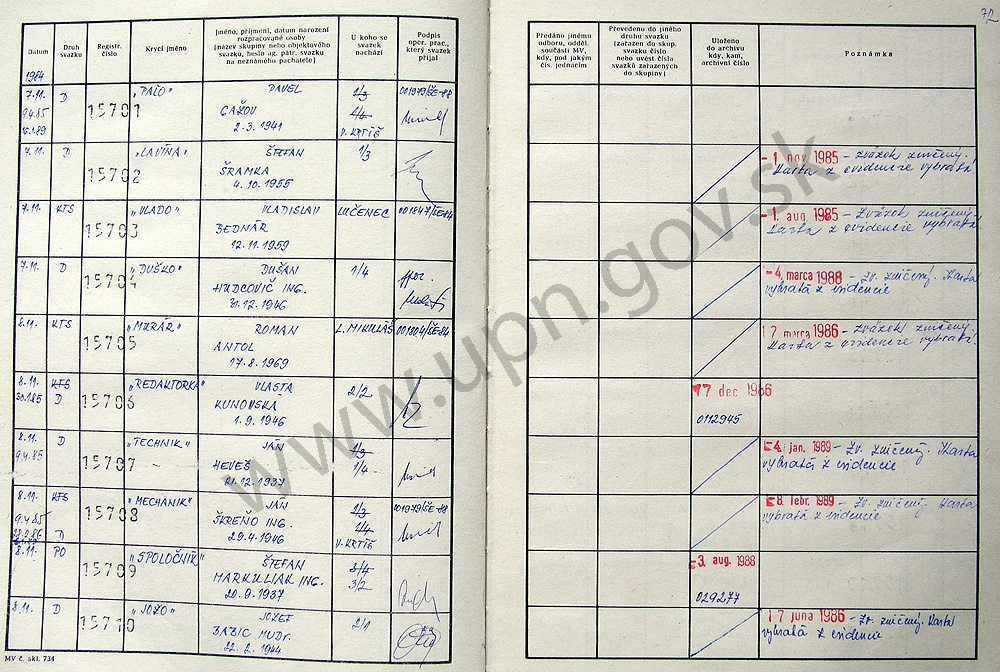 72
Datum
Druh svazku
Registr. číslo
Krycí jméno
Jméno, příjmení, datum narození
rozpracované osoby
(název skupiny nebo objektového
svazku, heslo ag. pátr. svazku
na neznámého pachatele)
U koho se
svazek
nachází
Podpis
oper. prac.,
který svazek
přijal
Předáno jinému
odboru, odděl.
součásti MV,
kdy, pod jakým
čís. jednacím
Převedeno do jiného
druhu svazku
(zařazen do skup.
svazku číslo
nebo uvést čísla
svazků zařazených
do skupiny)
Uloženo
do archivu
kdy, kam,
archivní číslo
Poznámka
1984
7.11. D 15701 „PAĽO" PAVEL 1/3
9.4.85 GAŽOV 1/4
2.3.1941 V. KRTÍŠ
7.11. D 15702 „LAVÍNA" ŠTEFAN 1/3
ŠRAMKA
4.10.1955
- 1. nov 1985 - Zväzok zničený.
Karta z evidencie vybratá
7.11. KTS 15703 „VLADO" VLADISLAV LUČENEC 001847/ŠE-84
BEDNÁR
12.11.1959
- 1. aug. 1985 - Zväzok zničený.
Karta z evidencie vybratá
7.11. D 15704 „DUŠKO" DUŠAN 1/4
HUDCOVIČ ING.
31.12.1946
- 4. marca 1988 - Zv. zničený. Karta
vybratá z evidencie
8.11. KTS 15705 „MURÁR" ROMAN L. MIKULÁŠ 001804/ŠE-84
ANTOL
17.8.1969
1 7 marca 1986 - Zväzok zničený.
Karta z evidencie vybratá
8.11. KTS 15706 „REDAKTORKA" VLASTA 2/2
D KUNOVSKA
1.9.1946
17 dec 1986
0112945
8.11. D 15707 „TECHNIK" JÁN 1/3
9.4.85 HEVEŠ 1/4
21.12.1937
- 4. jan. 1989 - Zv. zničený. Karta
vybratá z evidencie
8.11. KTS 15708 „MECHANIK" JÁN 1/3 001979/ŠE-88
9.4.85 ŠKREŇO ING. 1/4
D 29.4.1946 V. KRTÍŠ
8. febr. 1989 - Zv. zničený. Karta
vybratá z evidencie
8.11. PO 15709 „SPOLOČNÍK" ŠTEFAN 3/4
MARKULIAK ING. 3/2
20.9.1937
- 3. aug. 1988
029277
8.11. D 15710 „JOŽO" JOZEF 2/1
BABIC MUDr.
22.2.1944
1 7 júna 1986 - Zv. zničený. Karta
vybratá z evidencie
MV č. skl. 734
www.upn.gov.sk